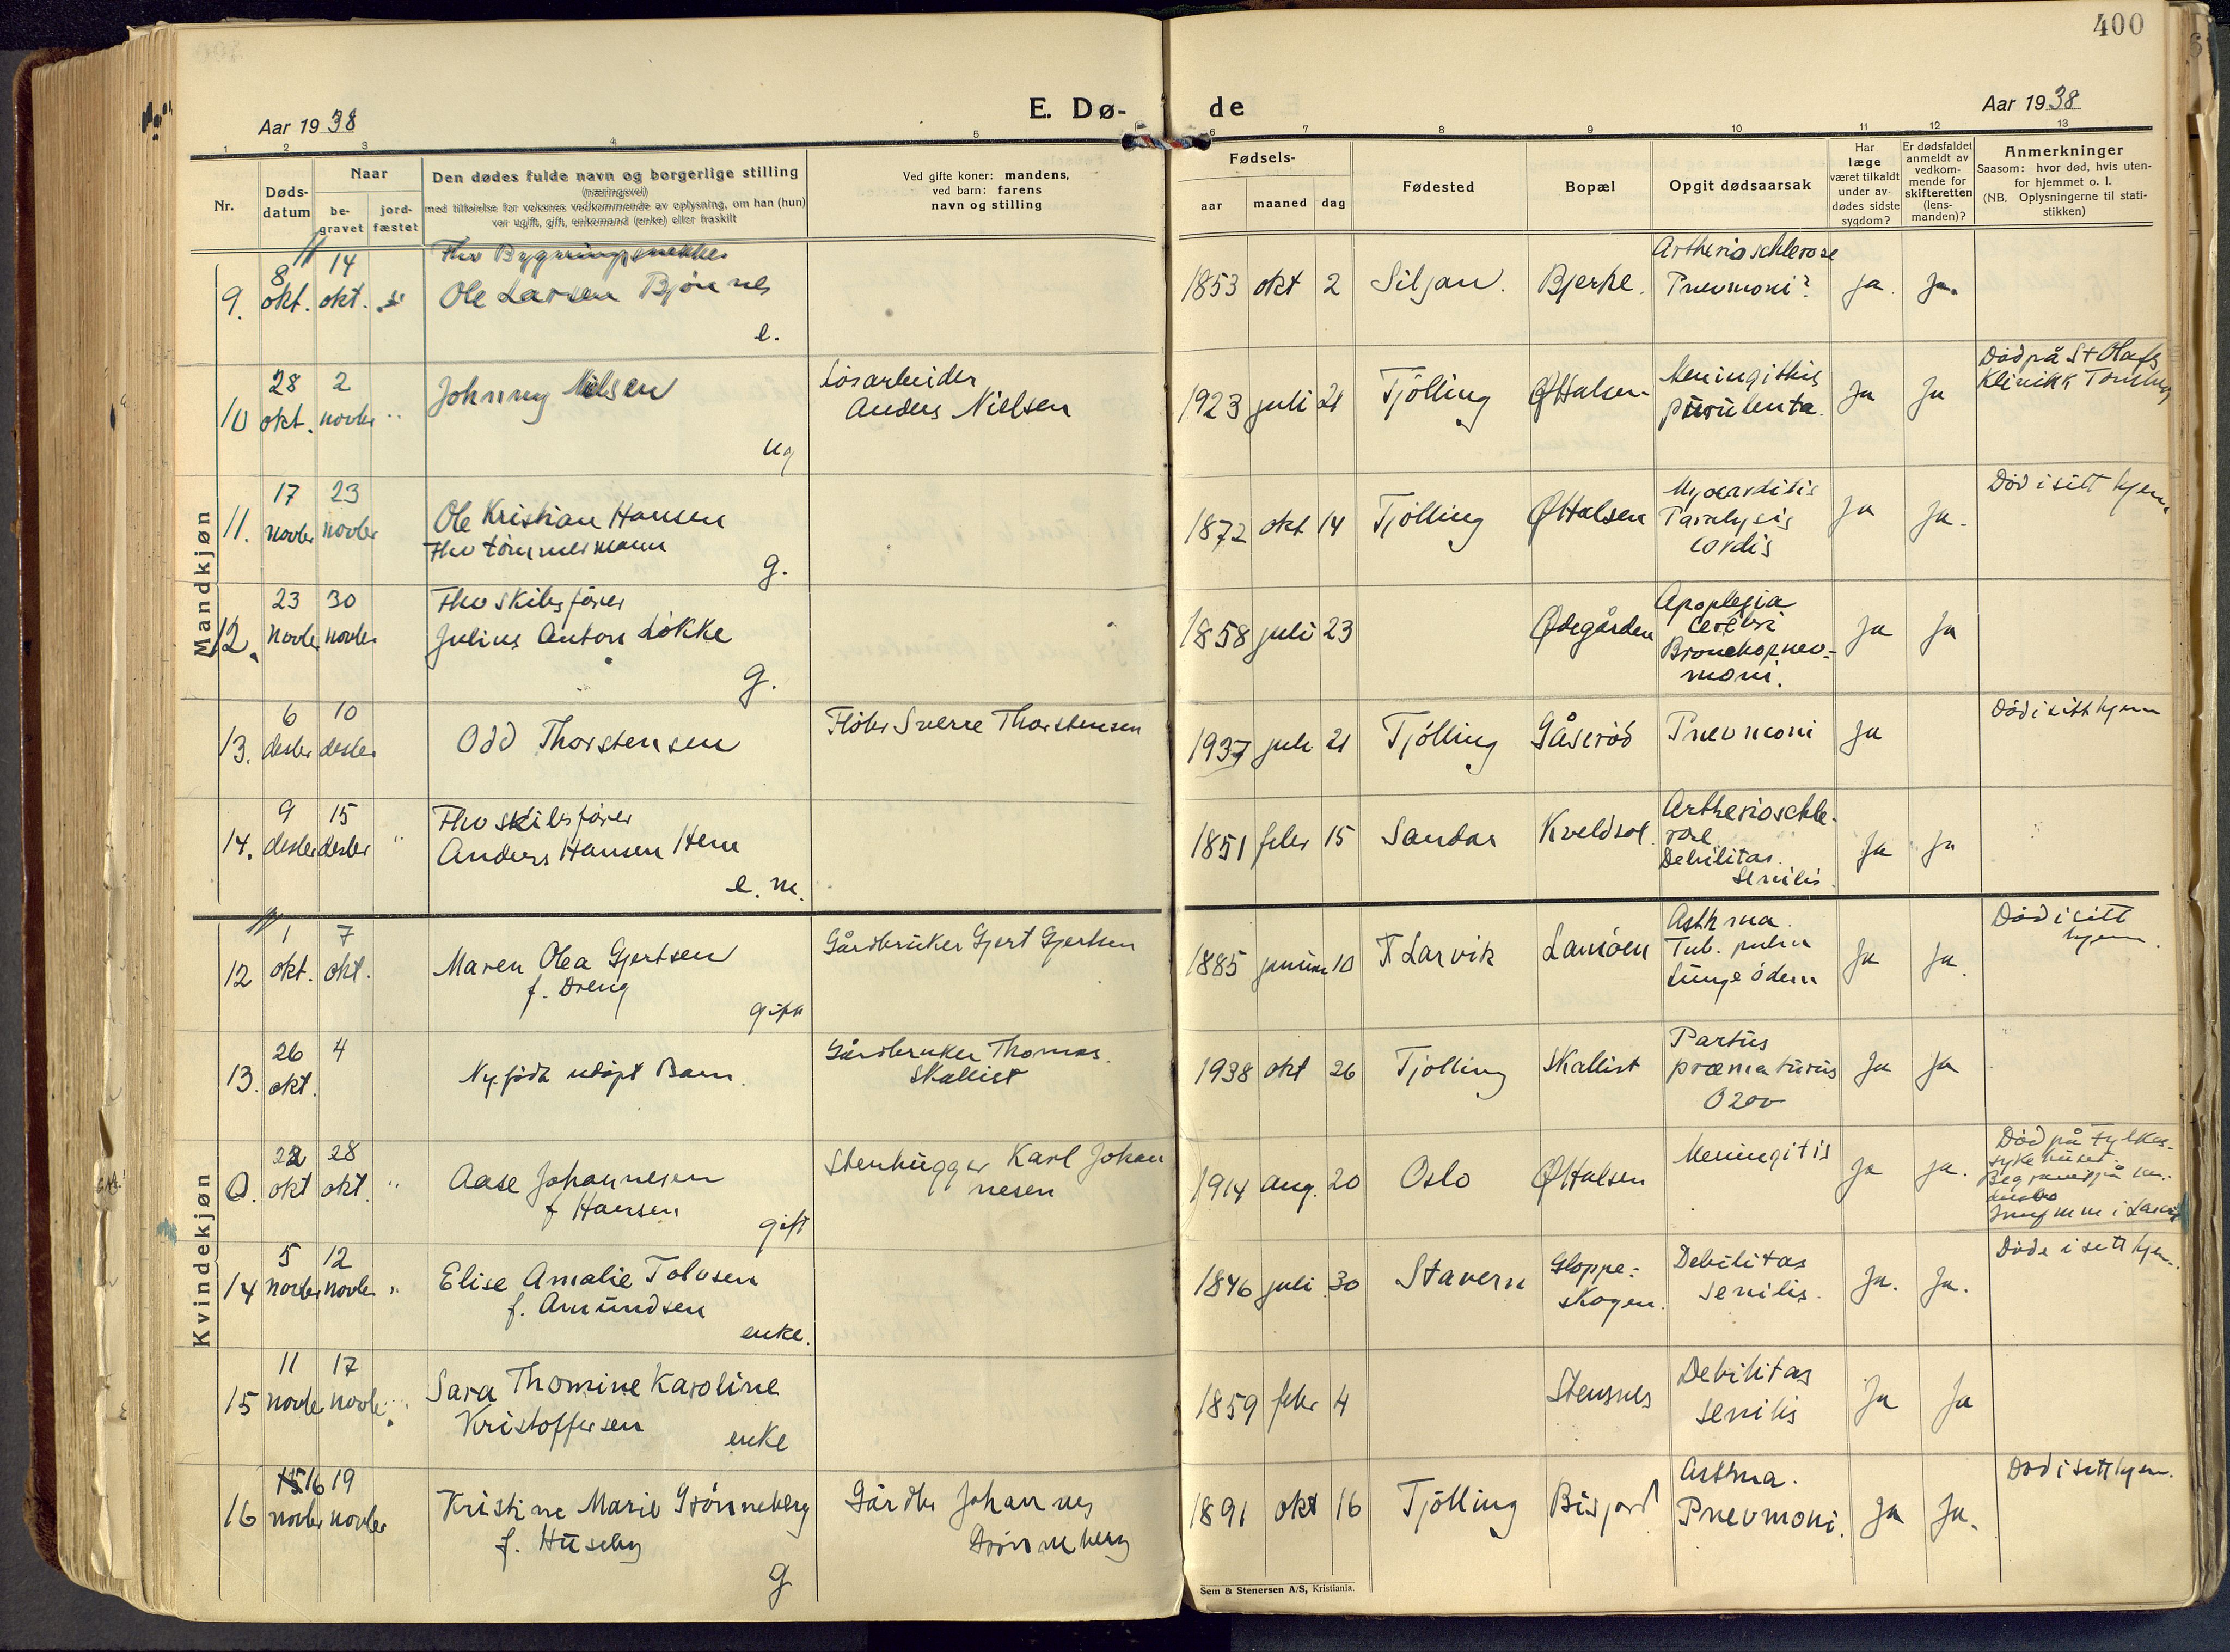 400
Aar 1938
E. Dø-
de
Aar 1938
1 2 3 4 5 6 7 8 9 10 11 12 13
Nr.
Døds-
datum
Naar
be-
gravet
jord-
fæstet
Den dødes fulde navn og borgerlige stilling
(næringsvei)
med tilføielse for voksnes vedkommende av oplysning, om han (hun)
var ugift, gift, enkemand (enke) eller fraskilt
Ved gifte koner: mandens,
ved barn: farens
navn og stilling
Fødsels-
aar maaned dag
Fødested
Bopæl
Opgit dødsaarsak
Har
læge
været tilkaldt
under av-
dødes sidste
sygdom?
Er dødsfaldet
anmeldt av
vedkom-
mende for
skifteretten
(lens-
manden)?
Anmerkninger
Saasom: hvor død, hvis uten-
for hjemmet o. l.
(NB. Oplysningerne til stati-
stikken)
Mandkjøn
9. 8 okt. 14 okt.
Fhv
Ole Larsen Bjønnes
e.
1853 okt 2 Siljan. Bjerke.
Artherioschlerose
Pnevmoni?
ja. ja.
10 28 okt. 2 novbr "
Johnny Nielsen
ug
Løsarbeider
Anders Nielsen
1923 juli 21 Tjölling Ø Halsen
Meningithis
purulenta.
ja ja
Död på St Olafs
Klinikk Tønsberg
11. 17 novbr 23 novbr
Ole Kristian Hansen
Fhv tömmermann
g.
1872 okt 14 Tjölling Ø Halsen
Myocarditis
Paralysis
cordis
ja ja.
Död i sitt hjem
12. 23 novbr 30 novbr
Fhv skibsförer
Julius Anton Løkke
g.
1858 juli 23 Ødegården
Apoplexia
cerebri
Bronchopnev-
moni.
ja ja
13. 6 desbr 10 desbr
Odd Thorstensen
Fløter Sverre Thorstensen
1937 juli 21 Tjölling Gåserød Pnevmoni ja
Död i sitt hjem
14. 9 desbr 15 desbr "
Fhv skibsförer
Anders Hansen Hem
e. m.
1851 febr 15 Sandar Kveldsol.
Artherioschle-
rose
Debilitas
senilis.
ja ja
Kvindekjøn
12 1 okt. 7 okt.
Maren Olea Gjertsen
f. Dreng
gift
Gårdbruker Gjert Gjertsen
1885 januar 10 Larvik Lamöen
Asthma.
Tub. pulm
Lungeödem
ja ja.
Död i sitt
hjem.
13. 26 okt. 4
Nyfödt udöpt Barn.
Gårdbruker Thomas.
Skallist
1938 okt 26 Tjölling Skallist
Partus
præmaturus
ja ja
0. 22 okt 28 okt. "
Aase Johannesen
f Hansen
gift
Stenhugger Karl Johan
nesen
1914 aug. 20 Oslo Ø Halsen Meningitis ja ja.
Död på Fylkes-
sykehuset.
14 5 novbr 12 novbr "
Elise Amalie Tolvsen
f. Amundsen
enke.
1846 juli 30 Stavern
Gloppe-
skogen.
Debilitas
senilis.
ja. ja.
Döde i sitt hjem.
15 11 novbr 17 novbr "
Sara Thomine Karoline
Kristoffersen
enke
1859 febr 4 Stensnes
Debilitas
senilis
ja ja
16 16 novbr 19 novbr
Kristine Marie Grönneberg
f. Huseby
g
Gårdbr Johannes
Grönneberg
1891 okt 16 Tjölling Bisjord
Asthma.
Pnevmoni.
ja ja.
Död i sitt hjem.
Sem & Stenersen A/S, Kristiania.